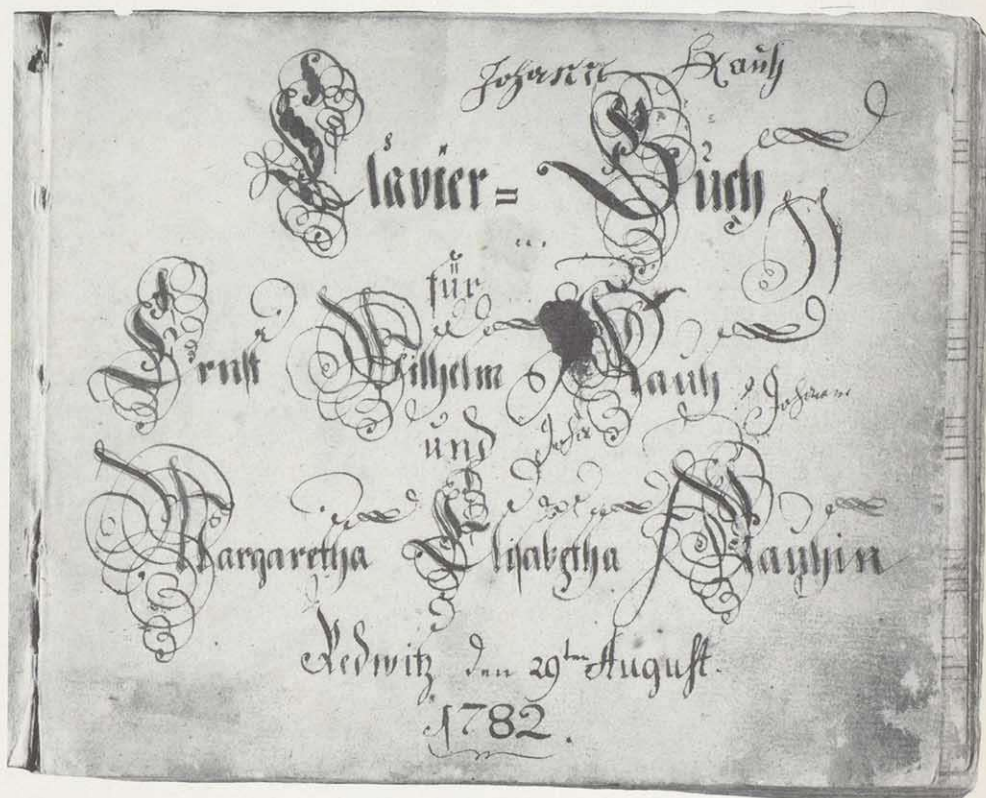 Johann Rauh
Klavier= Buch
für
Ernst Wilhelm Rauh Johann
und Joha
Margaretha Elisabetha Rauhin
Redwitz den 29ten August.
1782.